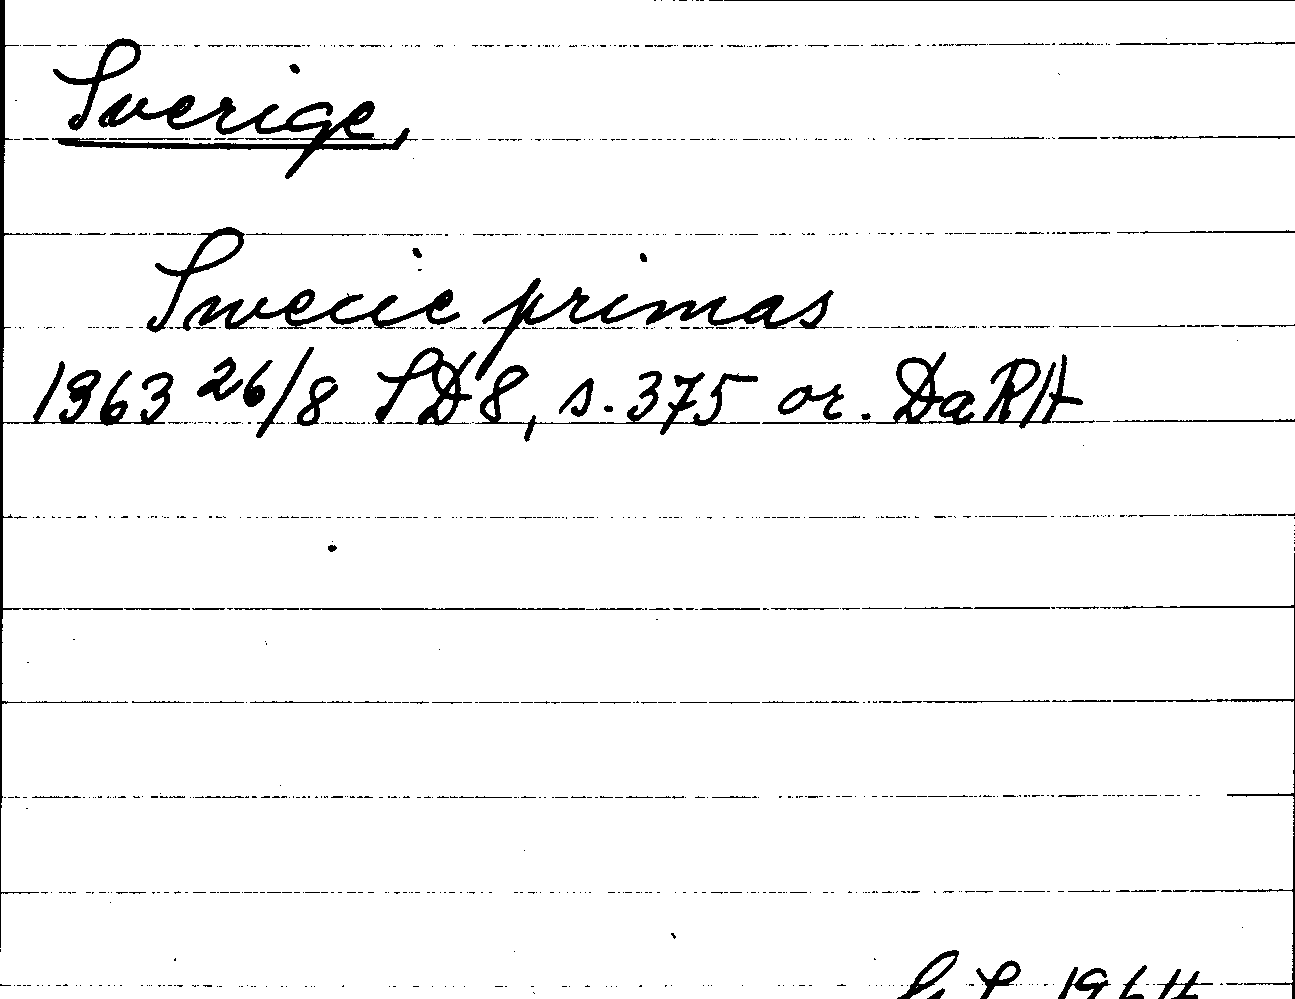 Sverige,
Swecie primas
1363 26/8 SD8, s. 375 or. DaRA
1964